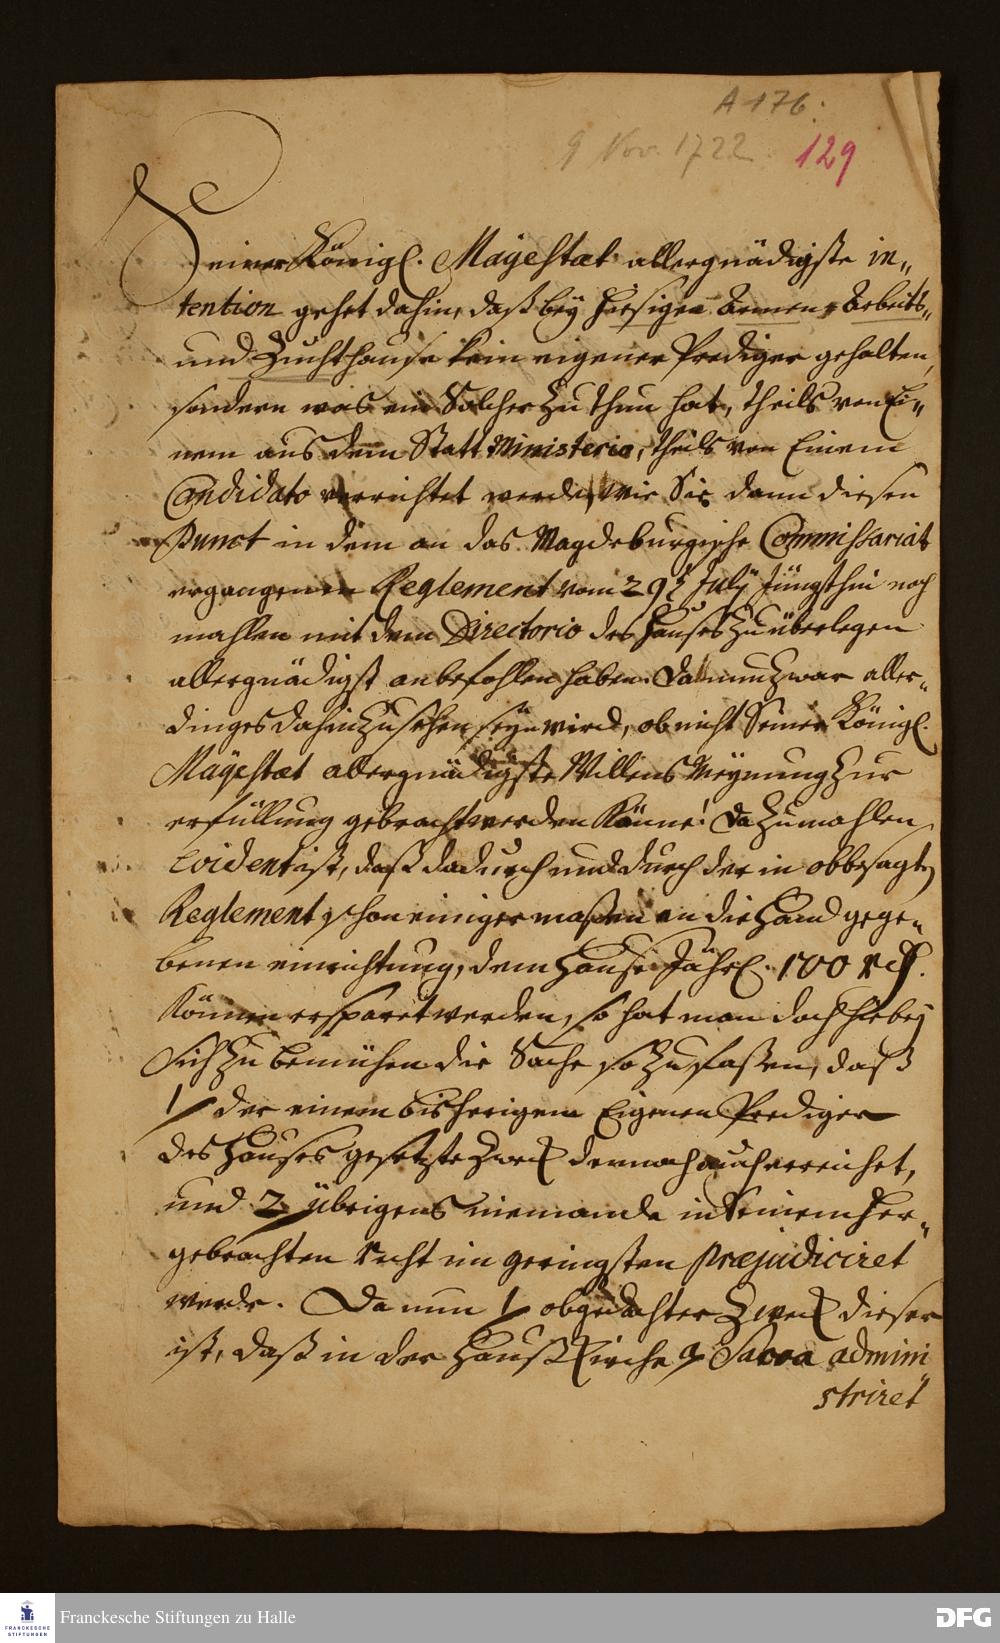 A 176.
9 Nov. 1722.
129
Seiner Königl. Mäyestæt allergnädigste in-
tention gehet dahin, daß bey hiesigen Armen, Arbeits-
und Zuchthause kein eigener Prediger gehalten,
sondern was ein Solcher zu thun hat, theils von Ei-
nem aus dem Statt Ministerio, theils von Einem
Candidato verrichtet werde, wie Sie dann diesen
Punct in dem an das Magdeburgische Commissariat
ergangenen Reglement vom 29t July jüngsthin noch
mahlen mit dem Directorio des Hauses zu überlegen
allergnädigst anbefohlen haben. Da nun zwar aller-
dinges dahin zu sehen seyn wird, ob nicht Seiner Königl.
Mäyestæt allergnädigste Willens Meynung zur
erfüllung gebracht werden Könne! Da zumahlen
Evident ist, daß dadurch und durch der in obbesagten
Reglement schon einiger maßen an die Hand gege-
benen einrichtung, dem Hause Jährl. 100 rthl.
Können ersparet werden, so hat man doch hiebey
Sich zu bemühen die Sache so zu faßen, daß
1/ der einem bisherigem Eigenen Prediger
des Hauses gesetzte Zweck dennoch auch erreichet,
und 2/ übrigens niemande in Seinem her-
gebrachten Recht im geringsten præjudiciret
werde. Da nun 1/ obgedachter Zweck dieser
ist, daß in der Hauß Kirche Sacra admini
striret
Franckesche Stiftungen zu Halle
FRANCKESCHE
STIFTUNGEN
DFG